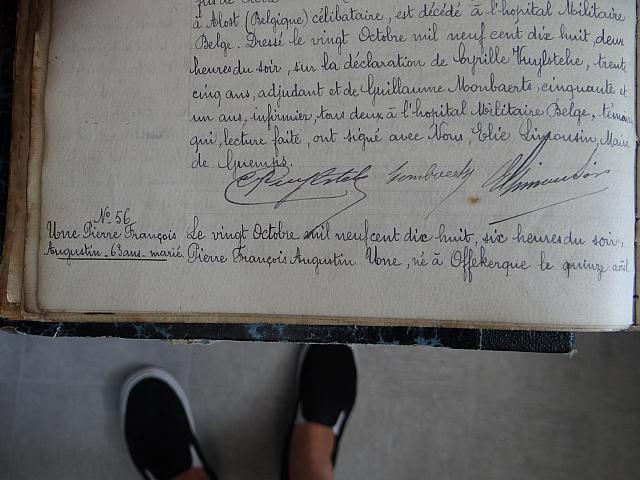 à Alost (Belgique) célibataire, est décédé à l'hopital Militaire
Belge. Dressé le vingt Octobre mil neuf cent dix huit, deux
heures du soir, sur la déclaration de Cyrille Kuylstehe, trente
cinq ans, adjudant et de Guillaume Mombaerts, cinquante et
un ans, infirmier, tous deux à l'hopital Militaire Belge, témoins
qui, lecture faite, ont signé avec Nous, Elie Limousin, Maire
de Guemps.
N° 56
Une Pierre François
Augustin - 63 ans - marié
Le vingt Octobre mil neuf cent dix huit, six heures du soir,
Pierre François Augustin Une, né à Offekerque le quinze août